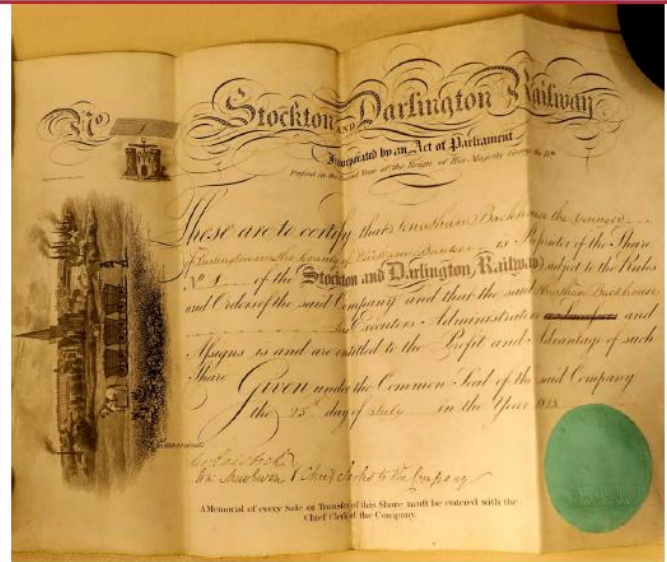 No
Stockton AND Darlington Railway
Incorporated by an Act of Parliament
Passed in the Second Year of the Reign of His Majesty George the 4th
These are to certify that Jonathan Backhouse the Younger
of Darlington in the County of Durham Banker is Proprietor of the Share
No 1 of the (Stockton and Darlington Railway) subject to the Rules
and Orders of the said Company and that the said Jonathan Backhouse
his Executors Administrators and
Assigns is and are entitled to the Profit and Advantage of such
Share Given under the Common Seal of the said Company
the 25th day of July in the Year 1823
Clerks to the Company
A Memorial of every Sale or Transfer of this Share must be entered with the
Chief Clerk of the Company.